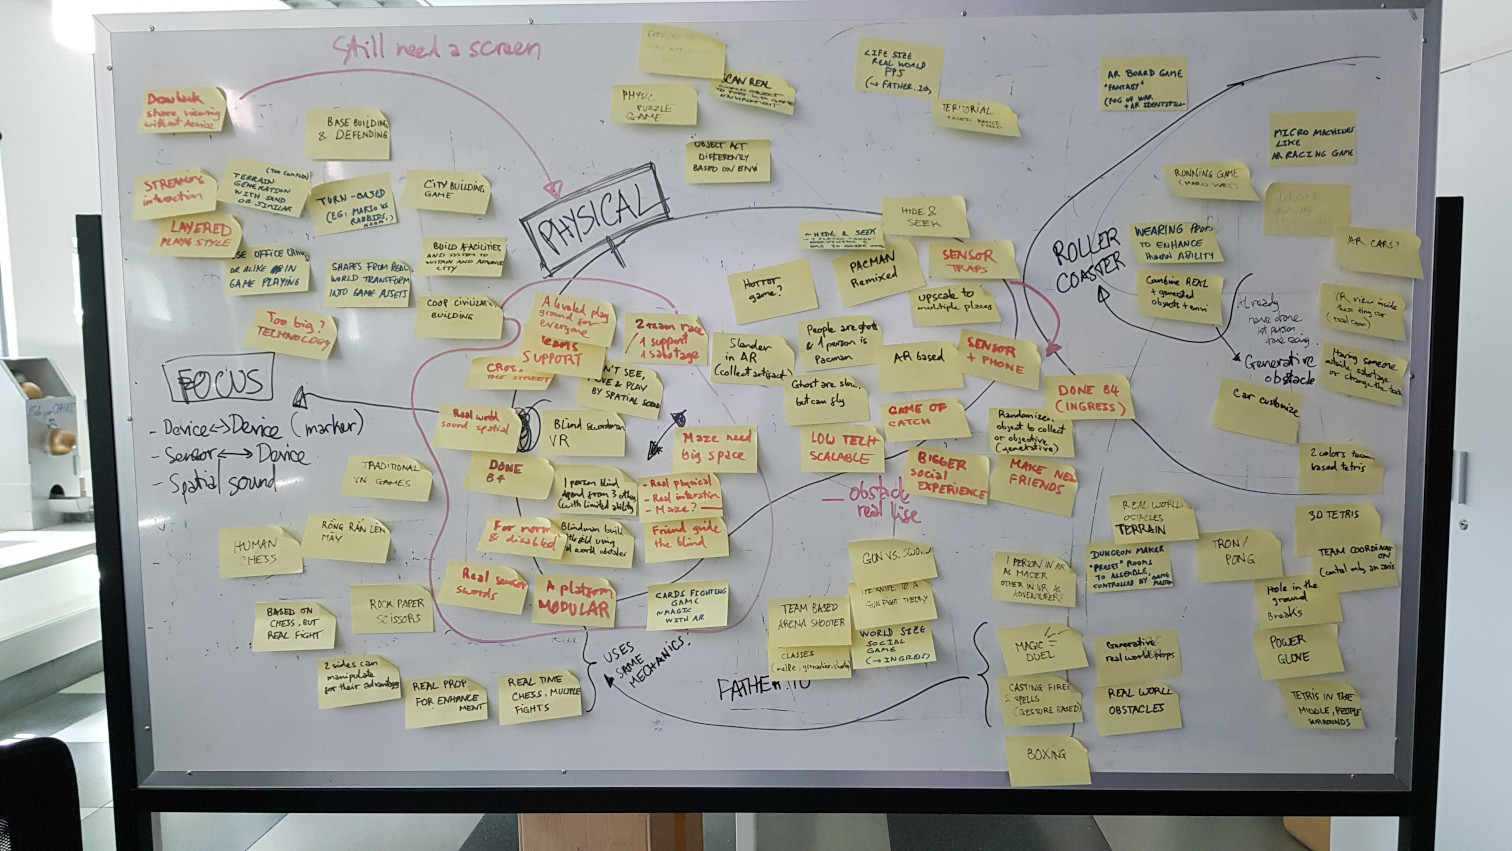 Still need a screen
Drawback
share, viewing
without device
BASE BUILDING
& DEFENDING
STREAMING
interaction
(TOO COMPLEX)
TERRAIN
GENERATION
WITH SAND
OR SIMILAR
TURN-BASED
(EG: MARIO VS
RABBIDS,
CITY BUILDING
GAME
LAYERED
PLAYING STYLE
USE OFFICE
OR ALIKE IN
GAME PLAYING
SHAPES FROM REAL
WORLD TRANSFORM
INTO GAME ASSETS
BUILD FACILITIES
AND SYSTEM TO
SUSTAIN AND ADVANCE
CITY
COOP CIVILIZATION
BUILDING
Too big?
TECHNOLOGY
PHYSIC
PUZZLE
GAME
SCAN REAL
ENVIRONMENT
OBJECT ACT
DIFFERENTLY
BASED ON ENVI
PHYSICAL
LIFE SIZE
REAL WORLD
FPS
(→ FATHER.IO)
TERITORIAL
AR BOARD GAME
"FANTASY"
(FOG OF WAR
+ AR IDENTIFIER
MICRO MACHINES
LIKE
AR RACING GAME
RUNNING GAME
(MARIO KART)
DRONE
AR CARS?
ROLLER
COASTER
WEARING PROPS
TO ENHANCE
HUMAN ABILITY
Combine REAL
+ generated
objects + envi
Already
have drone
1st person
drone racing
Generative
obstacle
VR view inside
Having someone
outside sabotage
or change the track
Car customize
2 colors team
based tetris
HIDE &
SEEK
~ HIDE & SEEK
PACMAN
Remixed
SENSOR
TRAPS
Horror
game?
upscale to
multiple players
People are ghosts
& 1 person is
Pacman
Slender
in AR
(collect artifact)
AR based
SENSOR
+ PHONE
Ghost are slow,
but can fly
GAME OF
CATCH
DONE B4
(INGRESS)
Randomizer
object to collect
or objective
(generative)
LOW TECH
SCALABLE
BIGGER
social
EXPERIENCE
MAKE NEW
FRIENDS
— obstacle
real life
A leveled play
ground for
everyone
teams
SUPPORT
2 team race
/ 1 support
1 sabotage
CROSS
THE STREET
CAN'T SEE,
MOVE & PLAY
BY SPATIAL SOUND
Real world
sound spatial
Blind swordman
VR
Maze need
big space
DONE
B4
1 person blind
depend from 3 other
(with limited ability)
- Real physical
- Real interaction
- Maze?
For normal
& disabled
Blindman build
world obstacles
Friend guide
the blind
Real sensor
swords
A platform
MODULAR
CARDS FIGHTING
GAME
~MAGIC
WITH AR
FOCUS
- Device <-> Device (marker)
- Sensor <-> Device
- Spatial sound
TRADITIONAL
VN GAMES
HUMAN
CHESS
RỒNG RẮN LÊN
MÂY
BASED ON
CHESS, BUT
REAL FIGHT
ROCK PAPER
SCISSORS
2 sides can
manipulate
for their advantage
REAL PROP
FOR ENHANCE
MENT
REAL TIME
CHESS, MULTIPLE
FIGHTS
USES
SAME
MECHANICS?
FATHER.IO
GUN VS. SWORD
GUN FIGHT THEORY
TEAM BASED
ARENA SHOOTER
CLASSES
WORLD SIZE
SOCIAL
GAME
(→ INGRESS)
REAL WORLD
OBSTACLES
TERRAIN
1 PERSON IN AR
AS MASTER
OTHER IN VR AS
ADVENTURERS
DUNGEON MAKER
"PRESET" ROOMS
TO ASSEMBLE,
CONTROLLED BY "GAME
MASTER
TRON/
PONG
3D TETRIS
TEAM COORDINATION
(control only an axis)
Hole in the
ground
Breaks
MAGIC
DUEL
Generative
real world props
POWER
GLOVE
CASTING FIRE
SPELLS
(GESTURE BASED)
REAL WORLD
OBSTACLES
TETRIS IN THE
MIDDLE, PEOPLE
SURROUNDS
BOXING